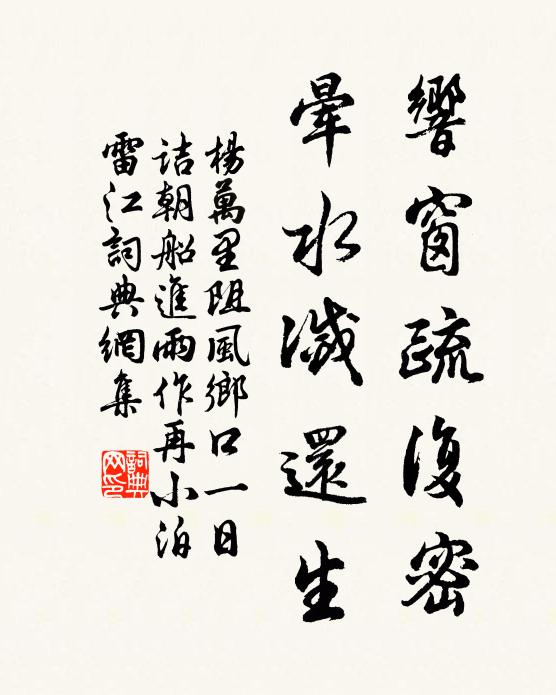 響窗疏復密
暈水滅還生
楊萬里阻風鄉口一日
詰朝船進雨作再小泊
雷江詞典網集
詞典网印